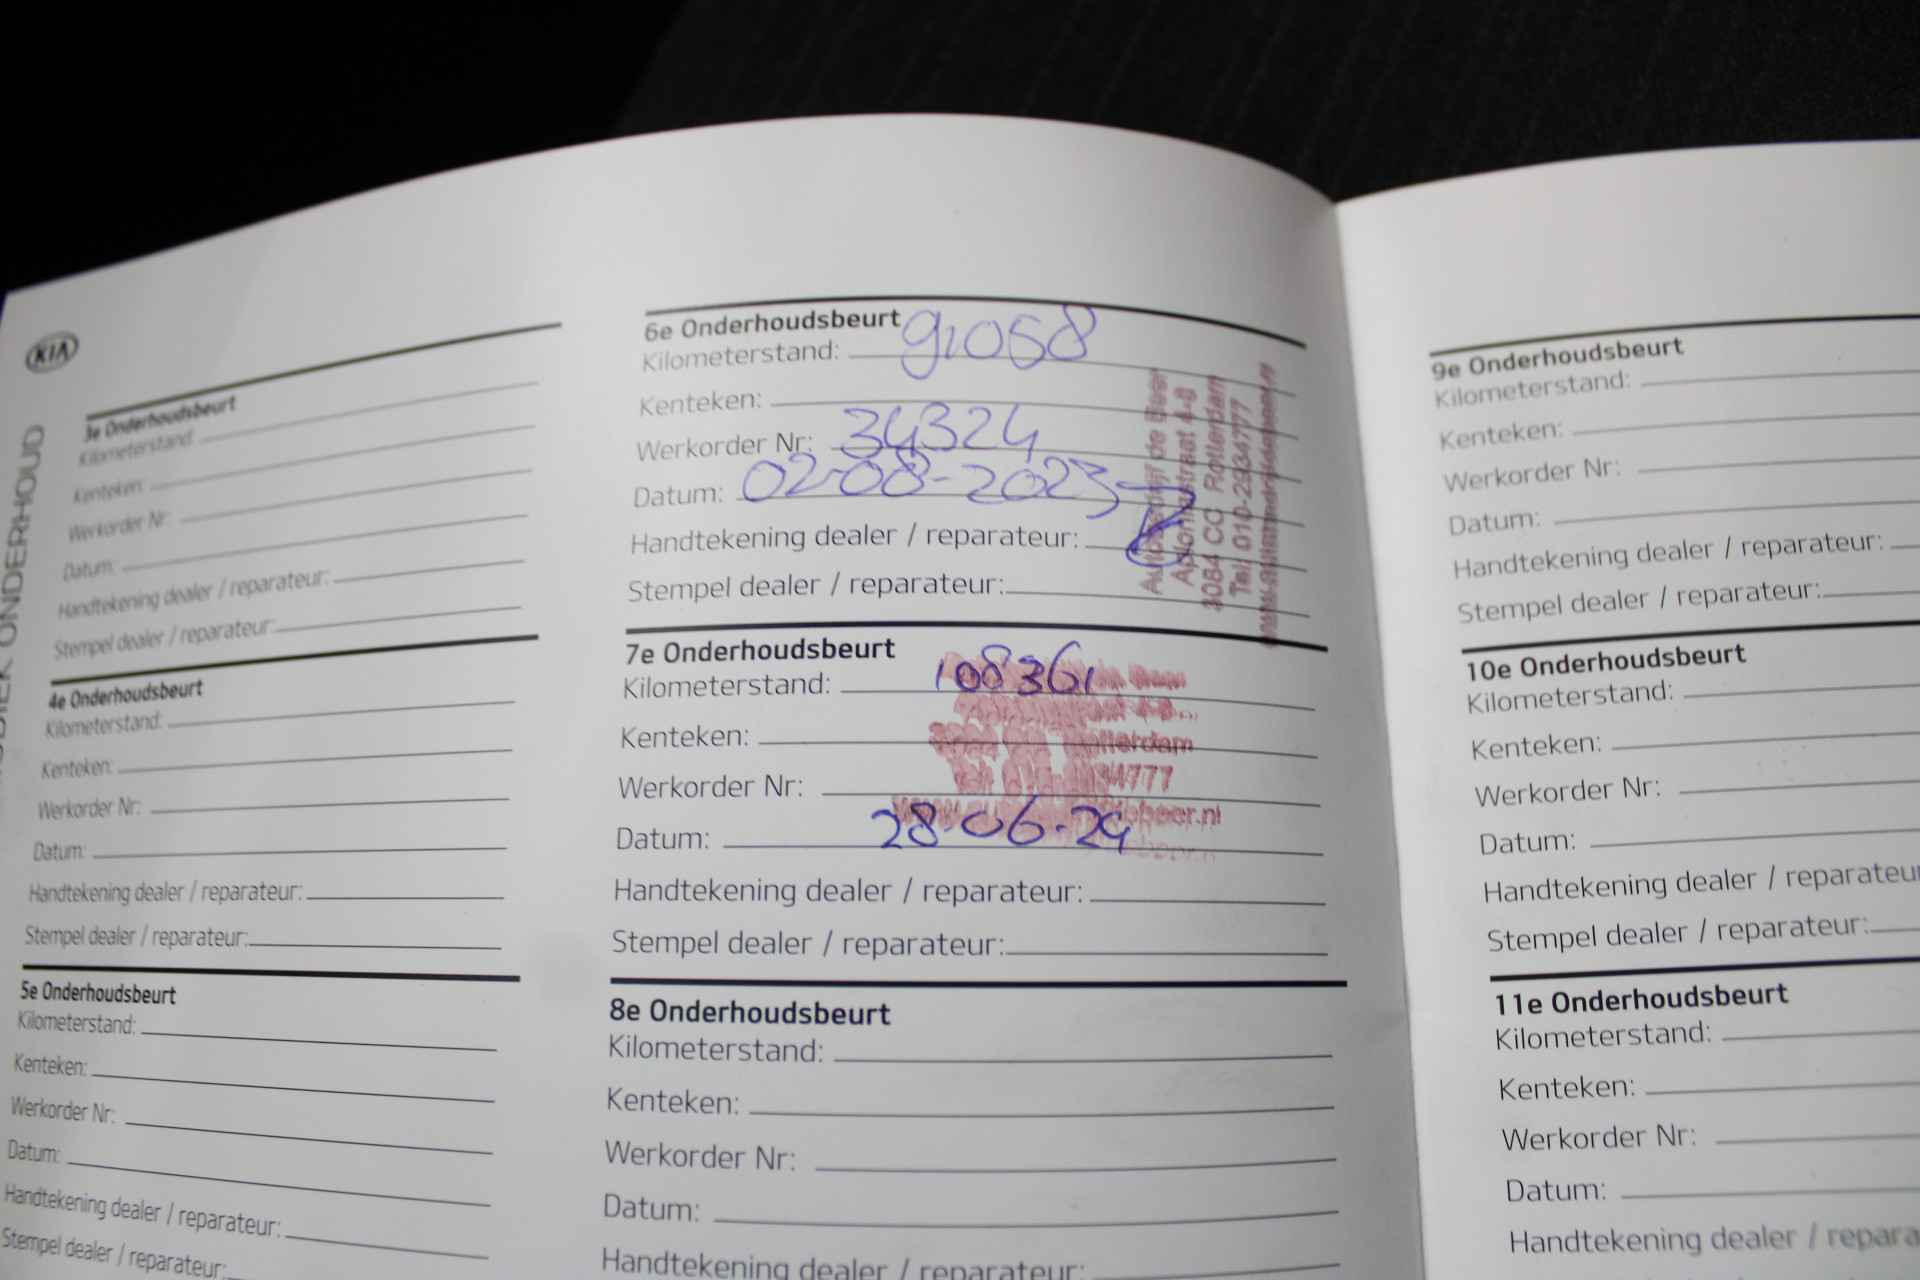 KIA
ONDERHOUD
3e Onderhoudsbeurt
Kilometerstand:
Kenteken:
Werkorder Nr:
Datum:
Handtekening dealer / reparateur:
Stempel dealer / reparateur:
4e Onderhoudsbeurt
Kilometerstand:
Kenteken:
Werkorder Nr:
Datum:
Handtekening dealer / reparateur:
Stempel dealer / reparateur:
5e Onderhoudsbeurt
Kilometerstand:
Kenteken:
Werkorder Nr:
Datum:
Handtekening dealer / reparateur:
Stempel dealer / reparateur:
6e Onderhoudsbeurt
Kilometerstand: 91068
Kenteken:
Werkorder Nr: 34324
Datum: 02-08-2023
Handtekening dealer / reparateur:
Stempel dealer / reparateur:
de Beer
4-8
3084 CC Rotterdam
Tel. 010-2934777
7e Onderhoudsbeurt
Kilometerstand: 108361
Kenteken:
Werkorder Nr:
Datum: 28-06-24
Handtekening dealer / reparateur:
Stempel dealer / reparateur:
8e Onderhoudsbeurt
Kilometerstand:
Kenteken:
Werkorder Nr:
Datum:
Handtekening dealer / reparateur:
9e Onderhoudsbeurt
Kilometerstand:
Kenteken:
Werkorder Nr:
Datum:
Handtekening dealer / reparateur:
Stempel dealer / reparateur:
10e Onderhoudsbeurt
Kilometerstand:
Kenteken:
Werkorder Nr:
Datum:
Handtekening dealer / reparateur
Stempel dealer / reparateur:
11e Onderhoudsbeurt
Kilometerstand:
Kenteken:
Werkorder Nr:
Datum:
Handtekening dealer / repara